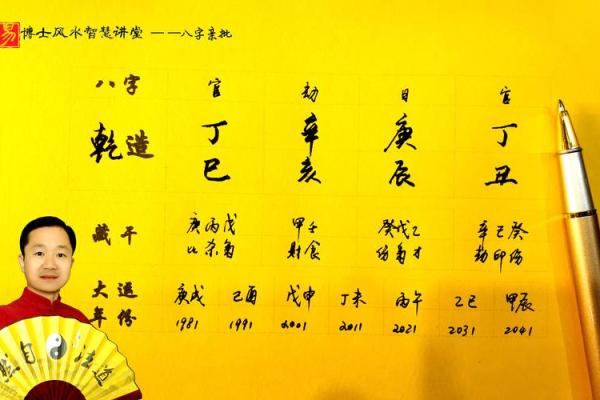 易 博士风水智慧讲堂 ——八字亲批
八字 官 劫 日 官
乾造 丁 辛 庚 丁
巳 亥 辰 丑
藏干 庚丙戊 甲壬 癸戊乙 辛己癸
比杀枭 财食 伤枭才 劫印伤
大运 庚戌 己酉 戊申 丁未 丙午 乙巳 甲辰
年份 1981 1991 2001 2011 2021 2031 2041
然自法道